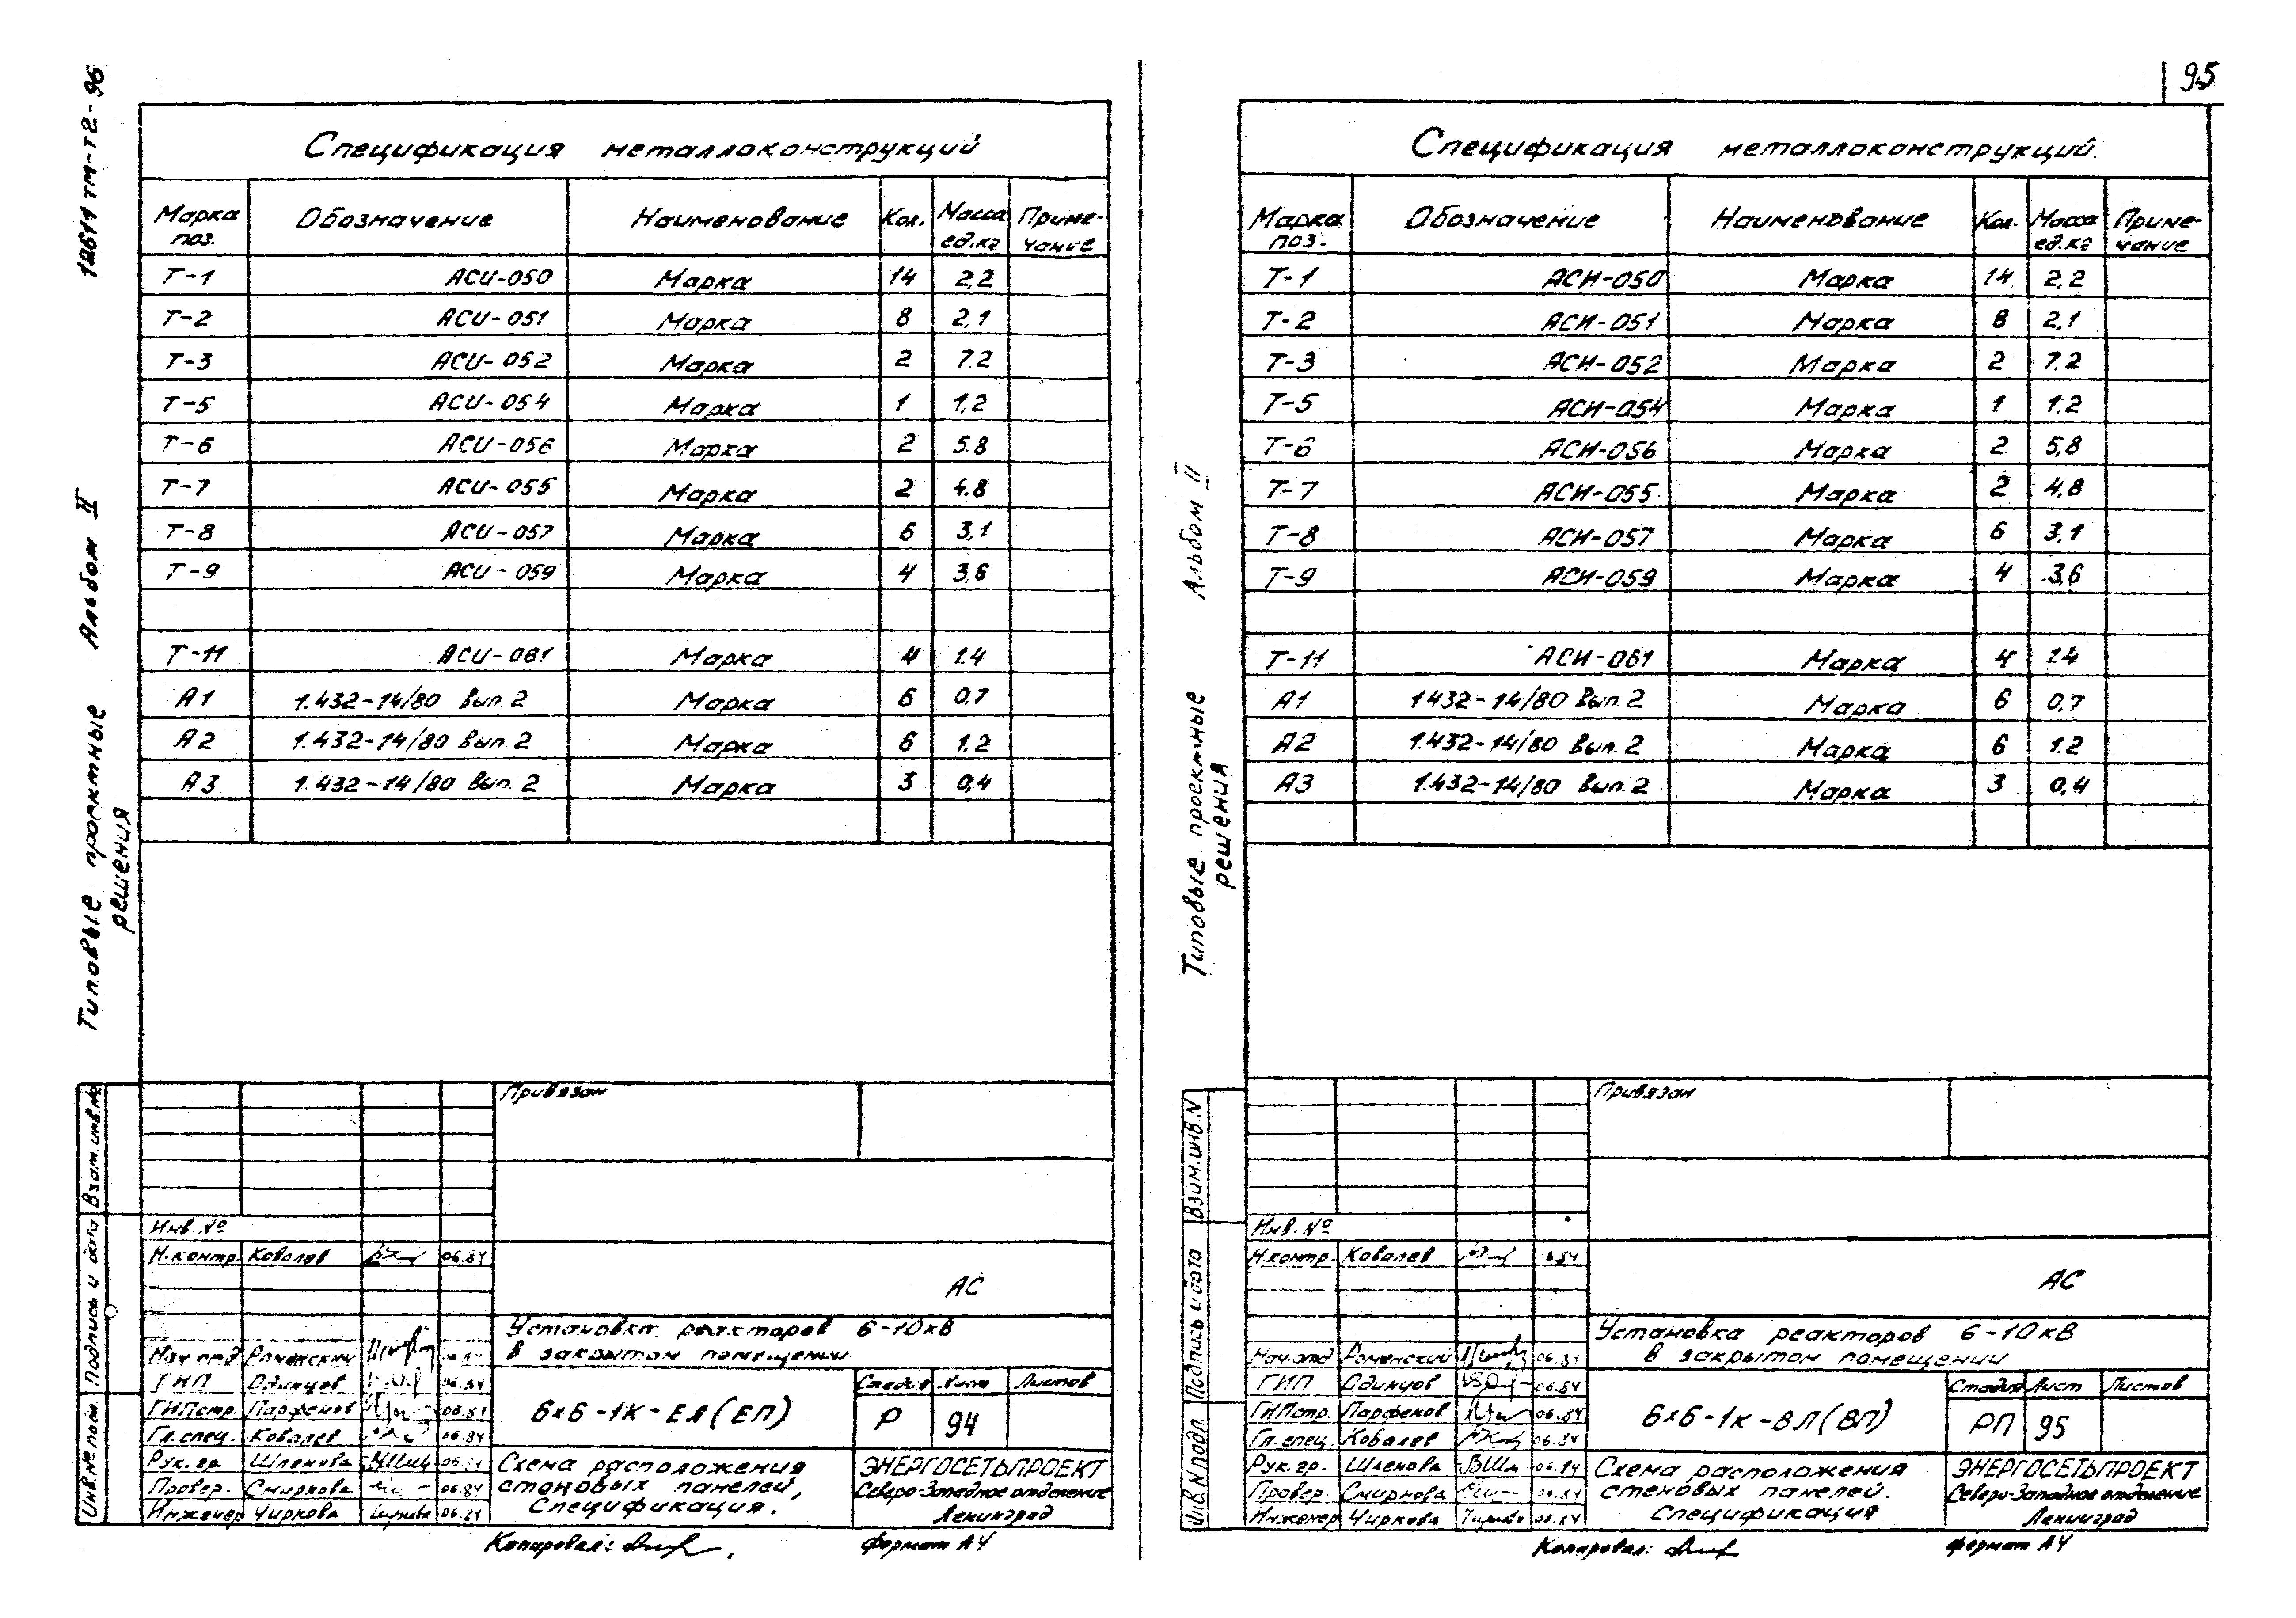 95
12611 тм-т2-96
Типовые проектные решения Альбом II
Спецификация металлоконструкций
Марка поз. Обозначение Наименование Кол. Масса ед.кг Приме-чание
Т-1 АСИ-050 Марка 14 2,2
Т-2 АСИ-051 Марка 8 2,1
Т-3 АСИ-052 Марка 2 7.2
Т-5 АСИ-054 Марка 1 1,2
Т-6 АСИ-056 Марка 2 5.8
Т-7 АСИ-055 Марка 2 4.8
Т-8 АСИ-057 Марка 6 3,1
Т-9 АСИ-059 Марка 4 3,6
Т-11 АСИ-061 Марка 4 1.4
А1 1.432-14/80 Вып.2 Марка 6 0,7
А2 1.432-14/80 Вып.2 Марка 6 1.2
А3 1.432-14/80 Вып.2 Марка 3 0,4
Привязан
Инв.№
Н.контр. Ковалев 06.84
АС
Установка реакторов 6-10кВ
в закрытом помещении.
Нач.отд Роменский
ГИП Одинцов 06.84
ГИПстр. Парфенов 06.84
Гл.спец. Ковалев 06.84
Рук.гр. Шленова 06.84
Провер. Смирнова 06.84
Инженер Чиркова 06.84
6х6-1К-ЕЛ(ЕП)
Стадия Лист Листов
Р 94
Схема расположения
стеновых панелей,
Спецификация.
ЭНЕРГОСЕТЬПРОЕКТ
Северо-Западное отделение
Ленинград
Взам.инв.№
Подпись и дата
Инв.№ подл.
Копировал:
Формат А4
Типовые проектные решения Альбом II
Спецификация металлоконструкций.
Марка поз. Обозначение Наименование Кол. Масса ед.кг Приме-чание
Т-1 АСИ-050 Марка 14 2,2
Т-2 АСИ-051 Марка 8 2,1
Т-3 АСИ-052 Марка 2 7.2
Т-5 АСИ-054 Марка 1 1.2
Т-6 АСИ-056 Марка 2 5,8
Т-7 АСИ-055 Марка 2 4,8
Т-8 АСИ-057 Марка 6 3,1
Т-9 АСИ-059 Марка 4 3,6
Т-11 АСИ-061 Марка 4 1.4
А1 1432-14/80 Вып.2 Марка 6 0,7
А2 1.432-14/80 Вып.2 Марка 6 1.2
А3 1.432-14/80 Вып.2 Марка 3 0,4
Привязан
Инв.№
Н.контр. Ковалев
АС
Установка реакторов 6-10кВ
в закрытом помещении
Нач.отд Роменский 06.84
ГИП Одинцов 06.84
ГИПстр. Парфенов 06.84
Гл.спец. Ковалев 06.84
Рук.гр. Шленова 06.84
Провер. Смирнова 06.84
Инженер Чиркова 06.84
6х6-1к-ВЛ(ВП)
Стадия Лист Листов
РП 95
Схема расположения
стеновых панелей.
Спецификация
ЭНЕРГОСЕТЬПРОЕКТ
Северо-Западное отделение
Ленинград
Взим.инв.N
Подпись и дата
Инв.N подл.
Копировал:
формат А4